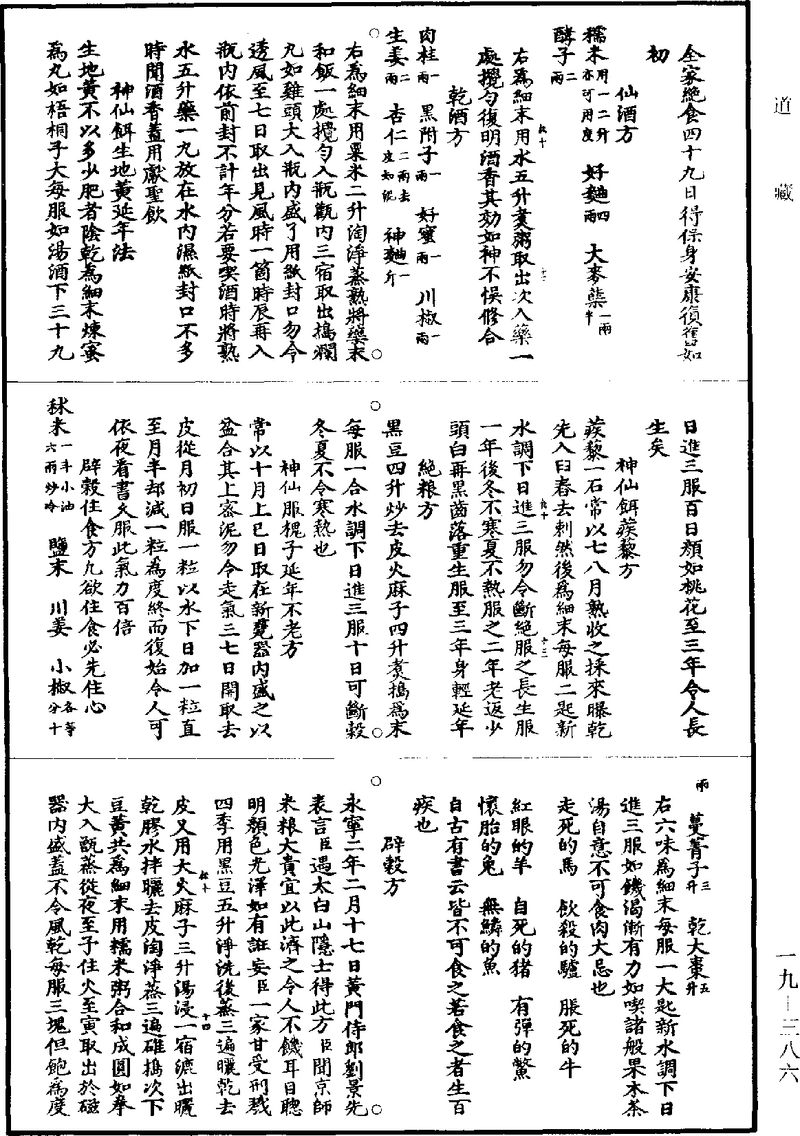 道藏
全家絶食四十九日得保身安康復舊如
初
仙酒方
糯米用一二升亦可用度 好麯四兩 大麥蘖一兩半
酵子二兩
右為細末用水五升煑粥取出次入藥一
處攪勻復明酒香其効如神不悮修合
乾酒方
肉桂一兩 黒附子一兩 好蜜一兩 川椒一兩
生姜二兩 杏仁二兩去皮如泥 神麯一斤
右為細末用粟米二升淘淨蒸熟將藥末
和飯一處攪勻入瓶甑内三宿取出搗爛
丸如雞頭大入瓶内盛了用紙封口勿令
透風至七日取出見風時一箇時辰再入
瓶内依前封不計年分若要喫酒時將熟
水五升藥一丸放在水内濕紙封口不多
時聞酒香蓋用獻聖飲
神仙餌生地黄延年法
生地黄不以多少肥者陰乾為細末煉蜜
為丸如梧桐子大每服如湯酒下三十九
日進三服百日顔如桃花至三年令人長
生矣
神仙餌蒺藜方
蒺藜一石常以七八月熟收之採來曝乾
先入臼舂去刺然後為細末每服二匙新
水調下日進三服勿令斷絶服之長生服
一年後冬不寒夏不熱服之二年老返少
頭白再黒齒落重生服至三年身輕延年
絶粮方
黒豆四升炒去皮火麻子四升煑搗為末
每服一合水調下日進三服十日可斷穀
冬夏不令寒熱也
神仙服槐子延年不老方
常以十月上巳日取在新甕器内盛之以
盆合其上密泥勿令走氣三七日開取去
皮從月初日服一粒以水下日加一粒直
至月半却減一粒為度終而復始令人可
依夜看書久服此氣力百倍
辟穀住食方凡欲住食必先住心
秫米一斗小油六兩炒冷 鹽末 川姜 小椒各等分十
兩 蔓菁子三升 乾大棗五升
右六味為細末每服一大匙新水調下日
進三服如饑渴漸有力如喫諸般果木茶
湯自意不可食肉大忌也
走死的馬 飲殺的驢 脹死的牛
紅眼的羊 自死的猪 有彈的鱉
懷胎的兔 無鱗的魚
自古有書云皆不可食之若食之者生百
疾也
辟穀方
永寧二年二月十七日黄門侍郎劉景先
表言臣遇太白山隱士得此方臣聞京師
米粮大貴宜以此濟之令人不饑耳目聰
明顔色光澤如有誑妄臣一家甘受刑戮
四季用黒豆五升淨洗後蒸三遍曬乾去
皮又用大火麻子三升湯浸一宿漉出曬
乾膠水拌曬去皮淘淨蒸三遍碓搗次下
豆黄共為細末用糯米粥合和成圓如拳
大入甑蒸從夜至子住火至寅取出於磁
器内盛蓋不令風乾每服三塊但飽為度
一九－三八六